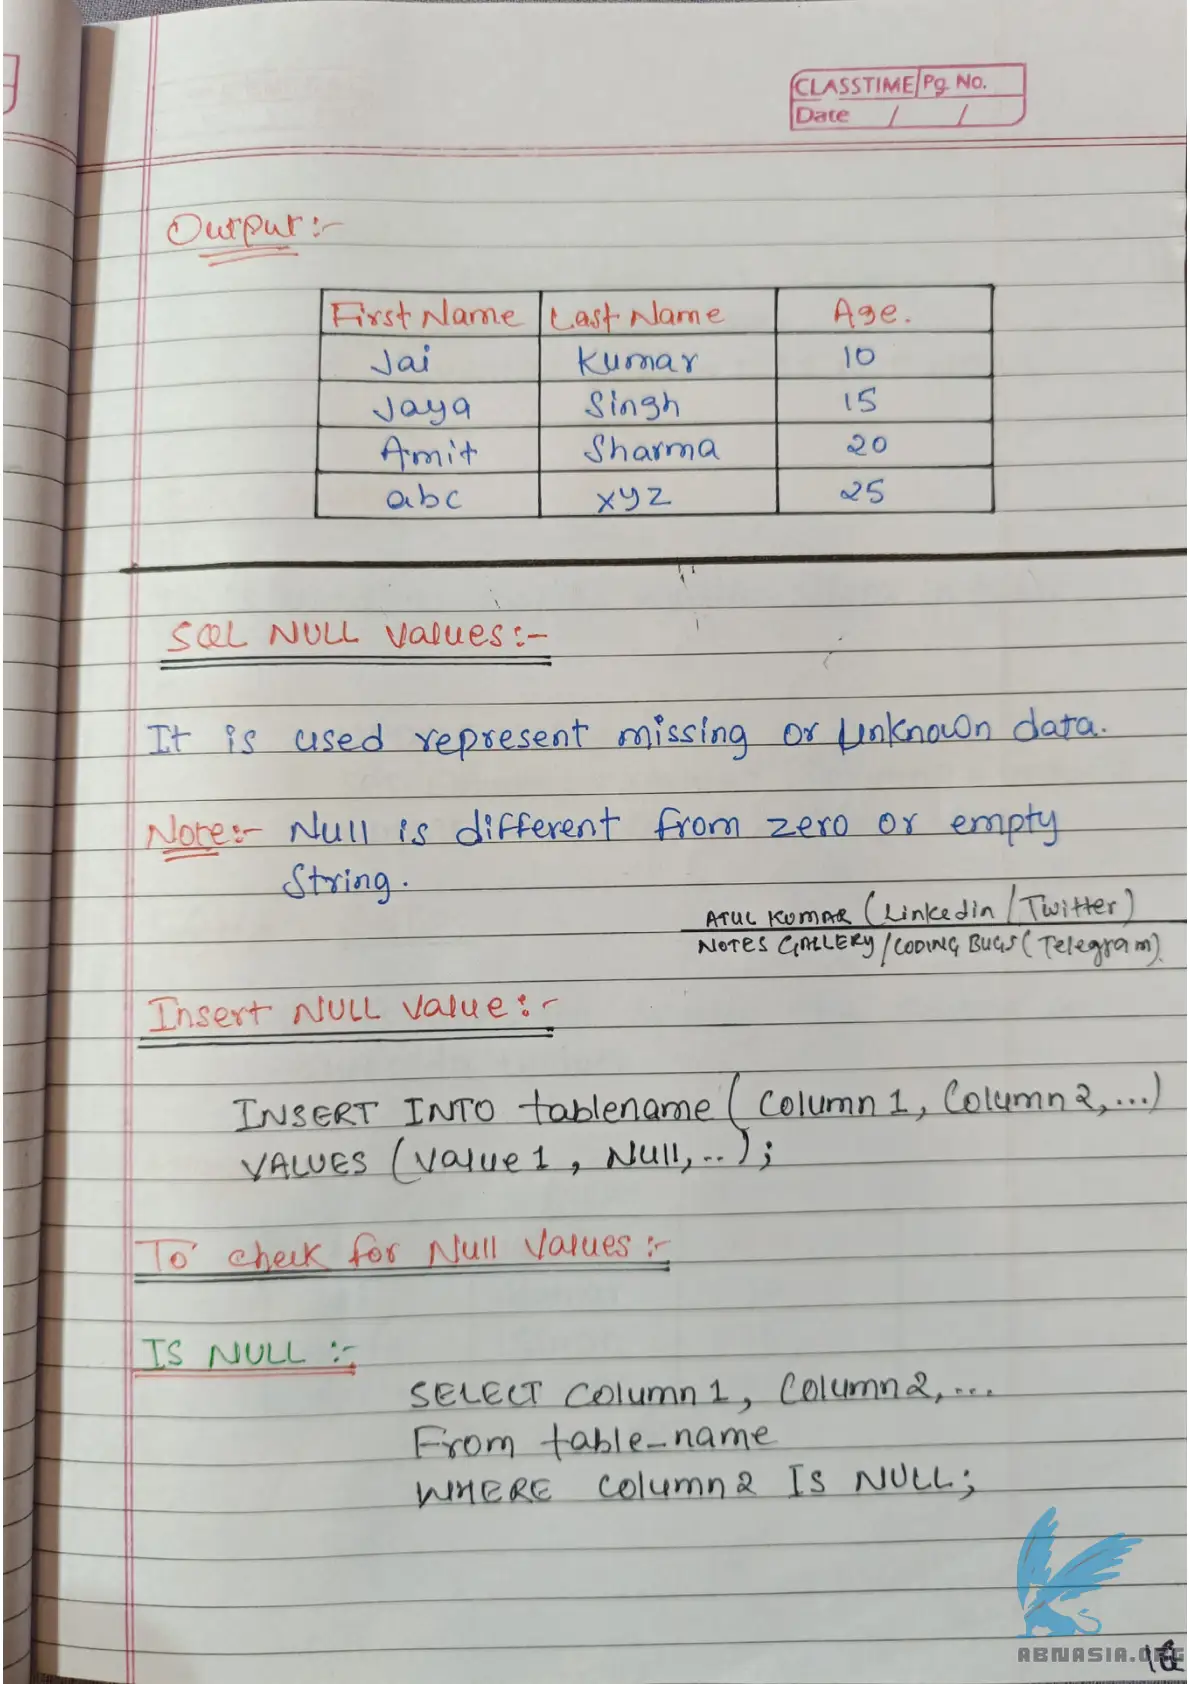 CLASSTIME Pg. No.
Date / /
Output:-
First Name Last Name Age.
Jai Kumar 10
Jaya Singh 15
Amit Sharma 20
abc xyz 25
SQL NULL Values:-
It is used represent missing or Unknown data.
Note:- Null is different from zero or empty
String.
ATUL KUMAR (Linkedin/Twitter)
NOTES GALLERY/CODING BUGS (Telegram).
Insert NULL Value:-
INSERT INTO tablename (Column1, Column2,...)
VALUES (Value1, Null,..);
To check for Null Values:-
IS NULL :-
SELECT Column1, Column2,...
From table_name
WHERE Column2 IS NULL;
ABNASIA.ORG